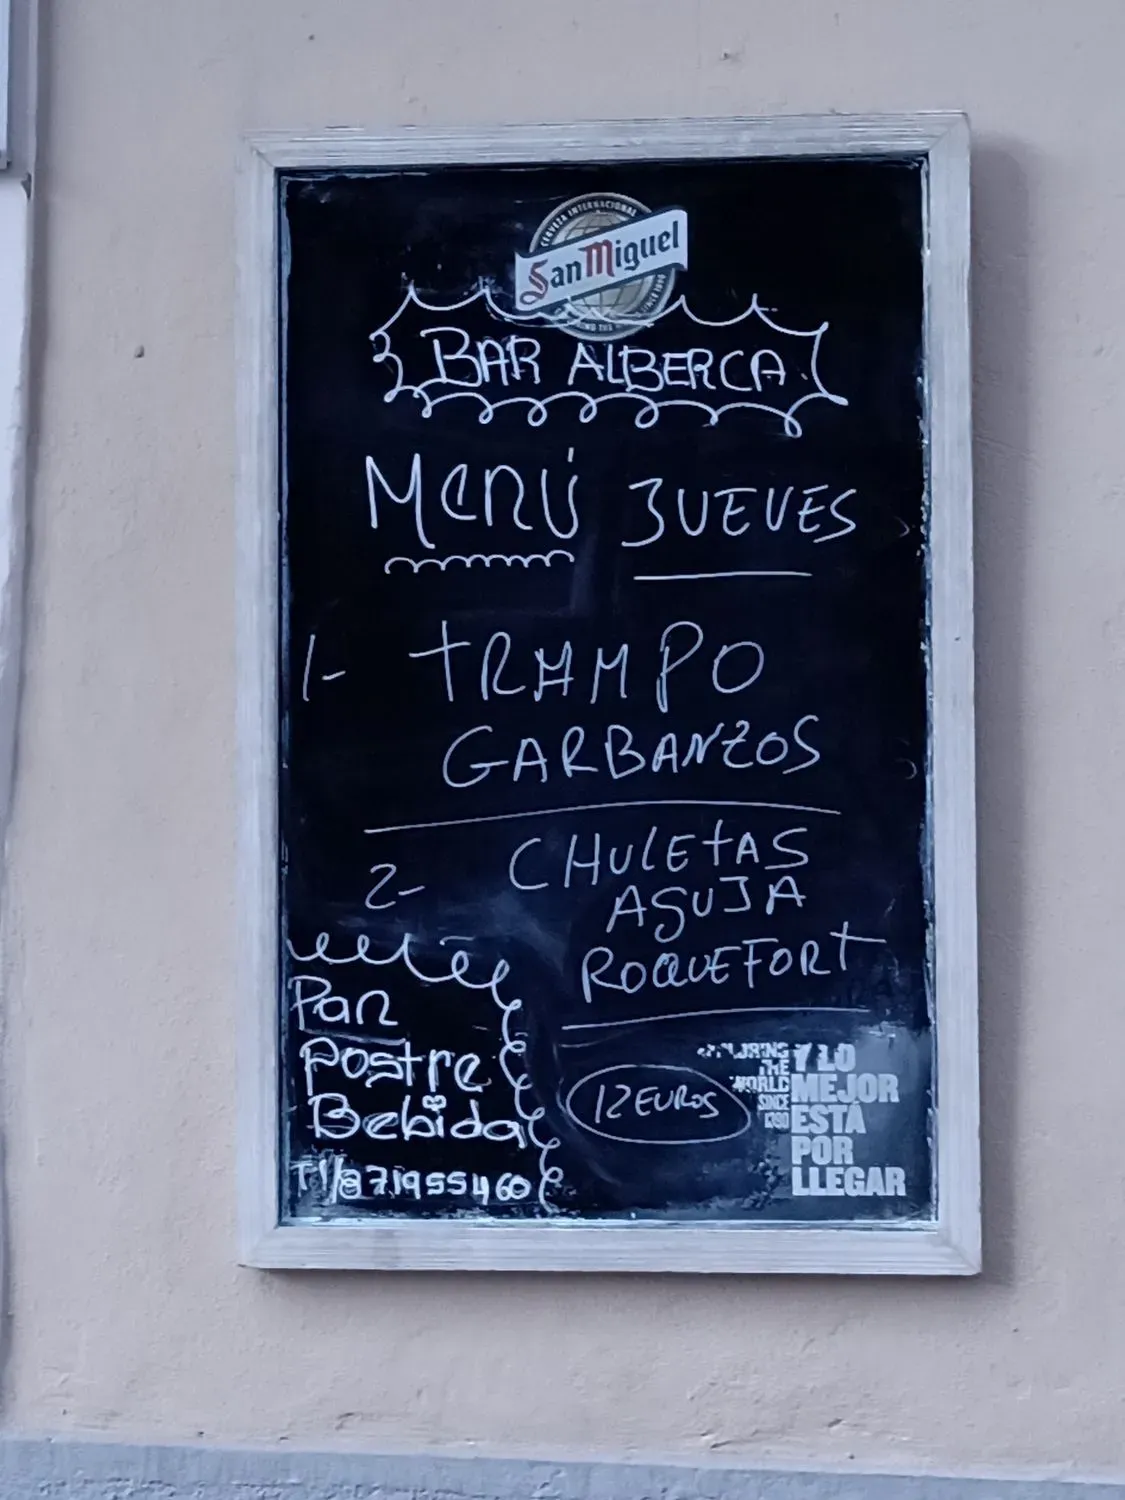 CERVEZA INTERNACIONAL
San Miguel
BAR ALBERCA
Menú JUEVES
1- TRAMPO
GARBANZOS
2- CHULETAS
AGUJA
ROQUEFORT
Pan
Postre
Bebida
12 EUROS
Tl/871955460
THE
WORLD
SINCE
1890
Y LO
MEJOR
ESTÁ
POR
LLEGAR